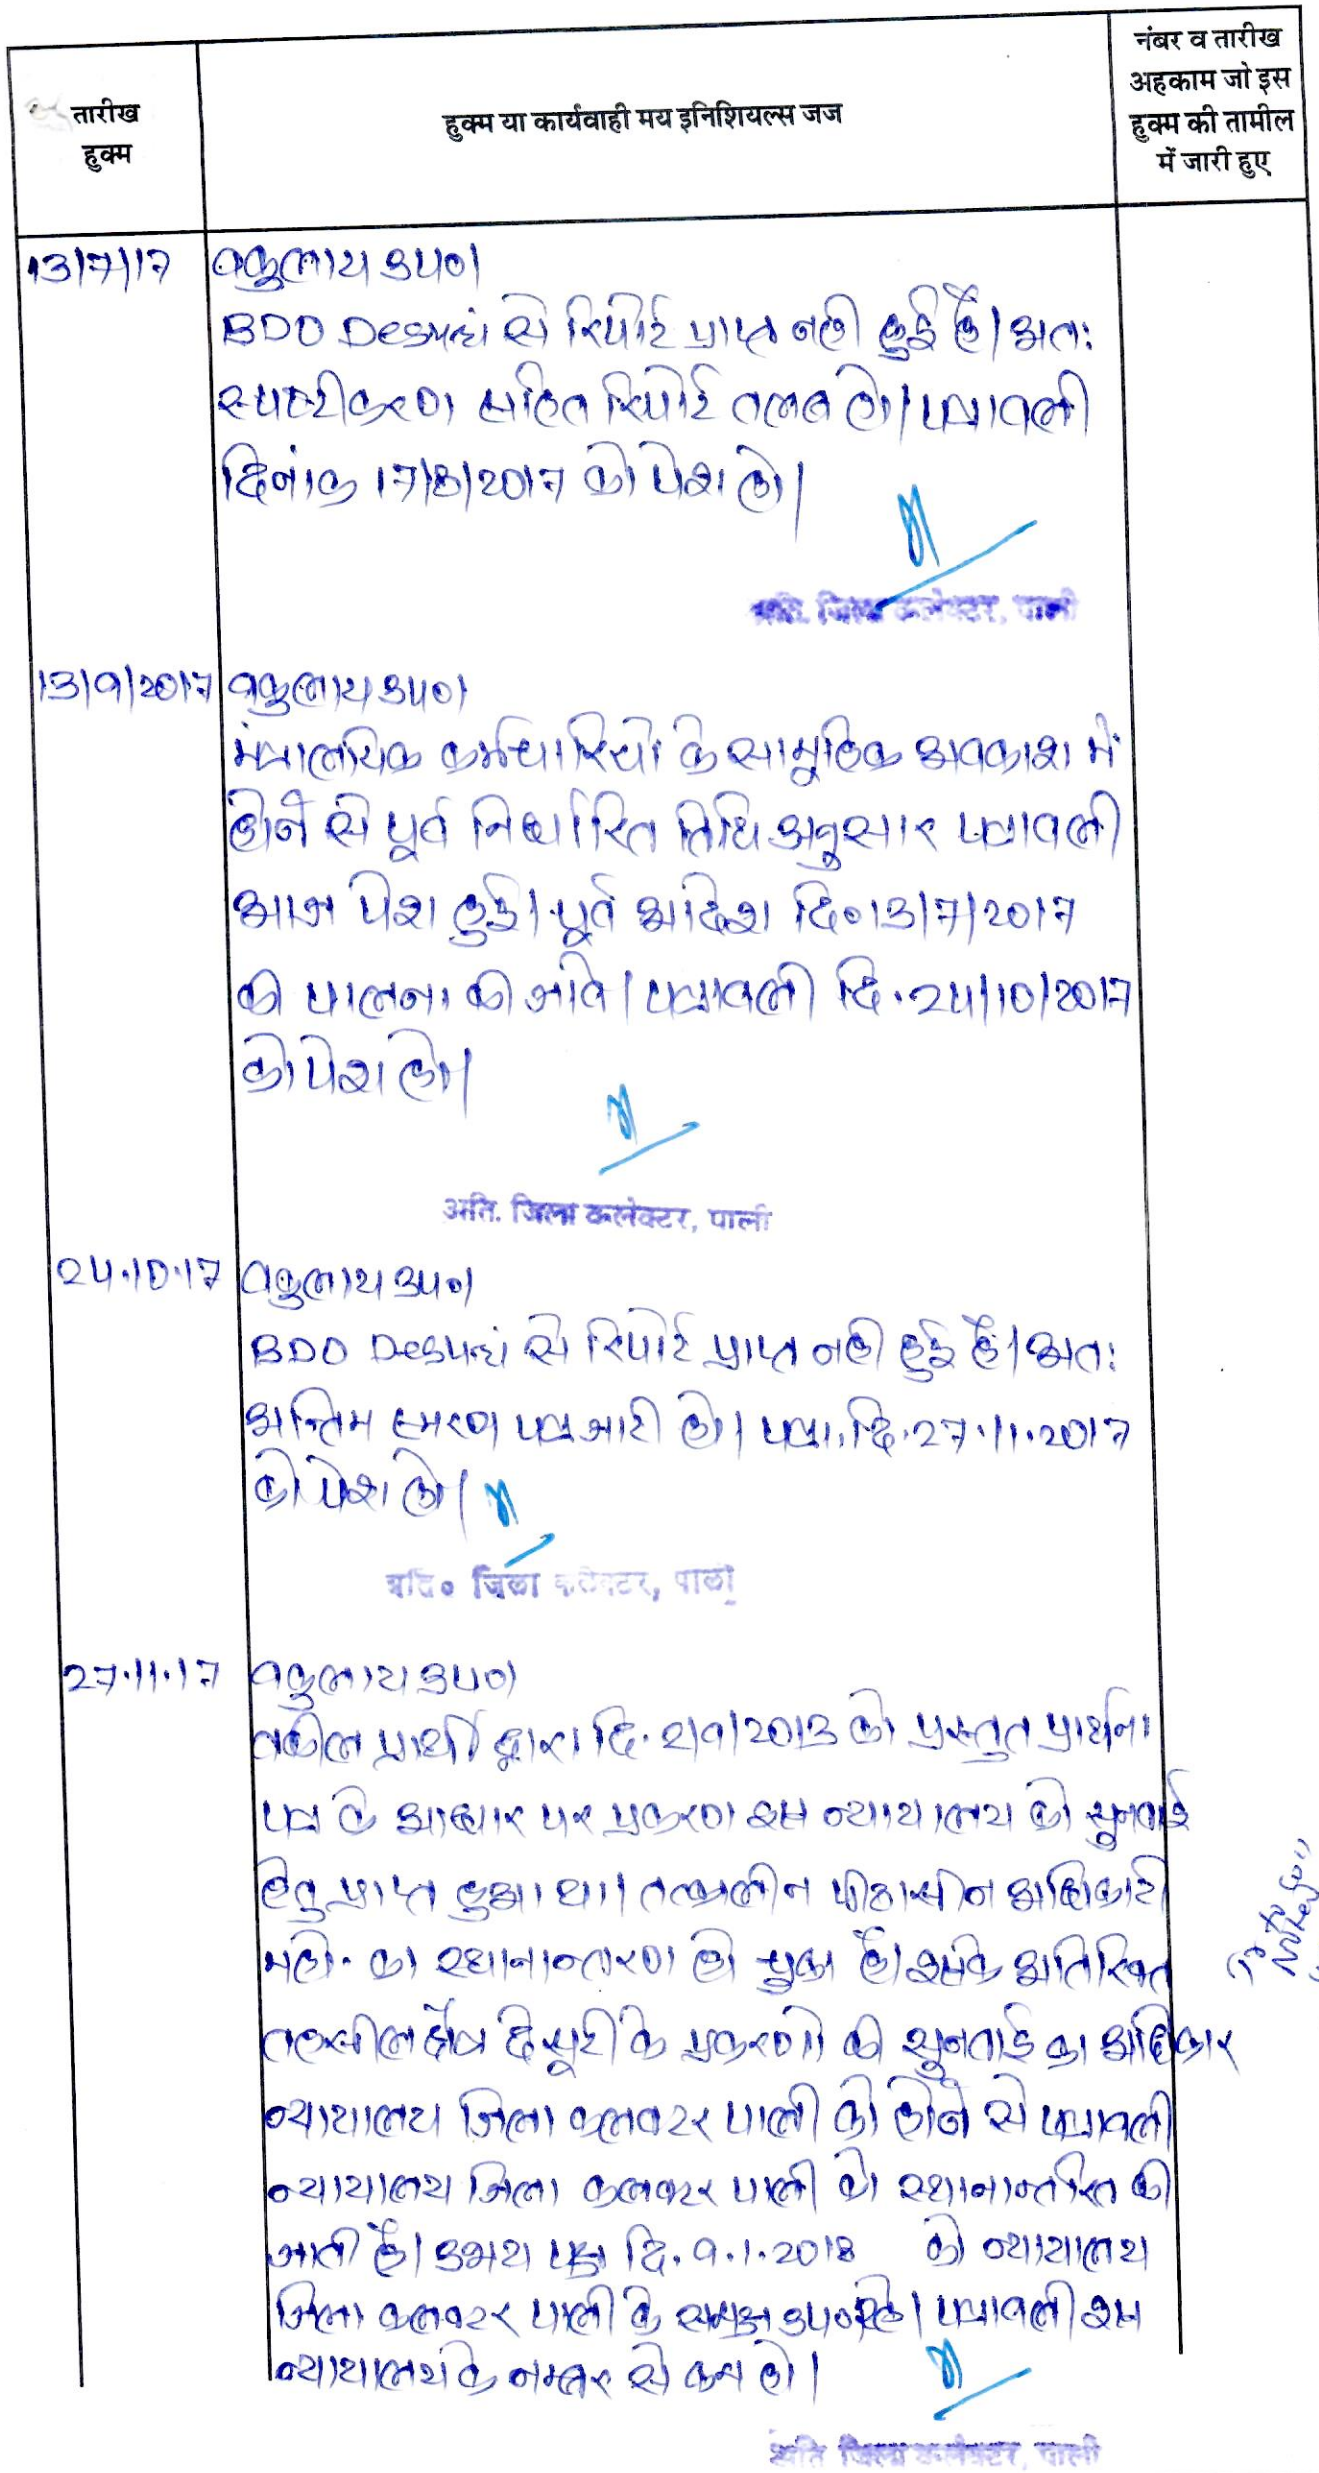 तारीख
हुक्म
हुक्म या कार्यवाही मय इनिशियल्स जज
नंबर व तारीख
अहकाम जो इस
हुक्म की तामील
में जारी हुए
13/7/17 वकुलाय उप०।
BDO Desuri से रिपोर्ट प्राप्त नही हुई है। अतः
स्पष्टीकरण सहित रिपोर्ट तलब हो। पत्रावली
दिनांक 17/8/2017 को पेश हो।
अति. जिला कलेक्टर, पाली
13/9/2017 वकुलाय उप०।
मंत्रालयिक कर्मचारियो के सामूहिक अवकाश मे
होने से पूर्व निर्धारित तिथि अनुसार पत्रावली
आज पेश हुई। पूर्व आदेश दि० 13/7/2017
की पालना की जावे। पत्रावली दि. 24/10/2017
को पेश हो।
अति. जिला कलेक्टर, पाली
24.10.17 वकुलाय उप०।
BDO Desuri से रिपोर्ट प्राप्त नही हुई है। अतः
अन्तिम स्मरण पत्र जारी हो। पत्रा. दि. 27.11.2017
को पेश हो।
अति० जिला कलेक्टर, पाली
27.11.17 वकुलाय उप०।
वकील प्रार्थी द्वारा दि. 2/9/2013 को प्रस्तुत प्रार्थना
पत्र के आधार पर प्रकरण इस न्यायालय को सुनवाई
हेतु प्राप्त हुआ था। तत्कालीन पीठासीन अधिकारी
महो. का स्थानान्तरण हो चुका है। इसके अतिरिक्त
तहसील क्षैत्र देसूरी के प्रकरणो की सुनवाई का अधिकार
न्यायालय जिला कलक्टर पाली को होने से पत्रावली
न्यायालय जिला कलक्टर पाली को स्थानान्तरित की
जाती है। उभय पक्ष दि. 9.1.2018 को न्यायालय
जिला कलक्टर पाली के समक्ष उप० रहे। पत्रावली इस
न्यायालय के नम्बर से कम हो।
अति जिला कलेक्टर, पाली